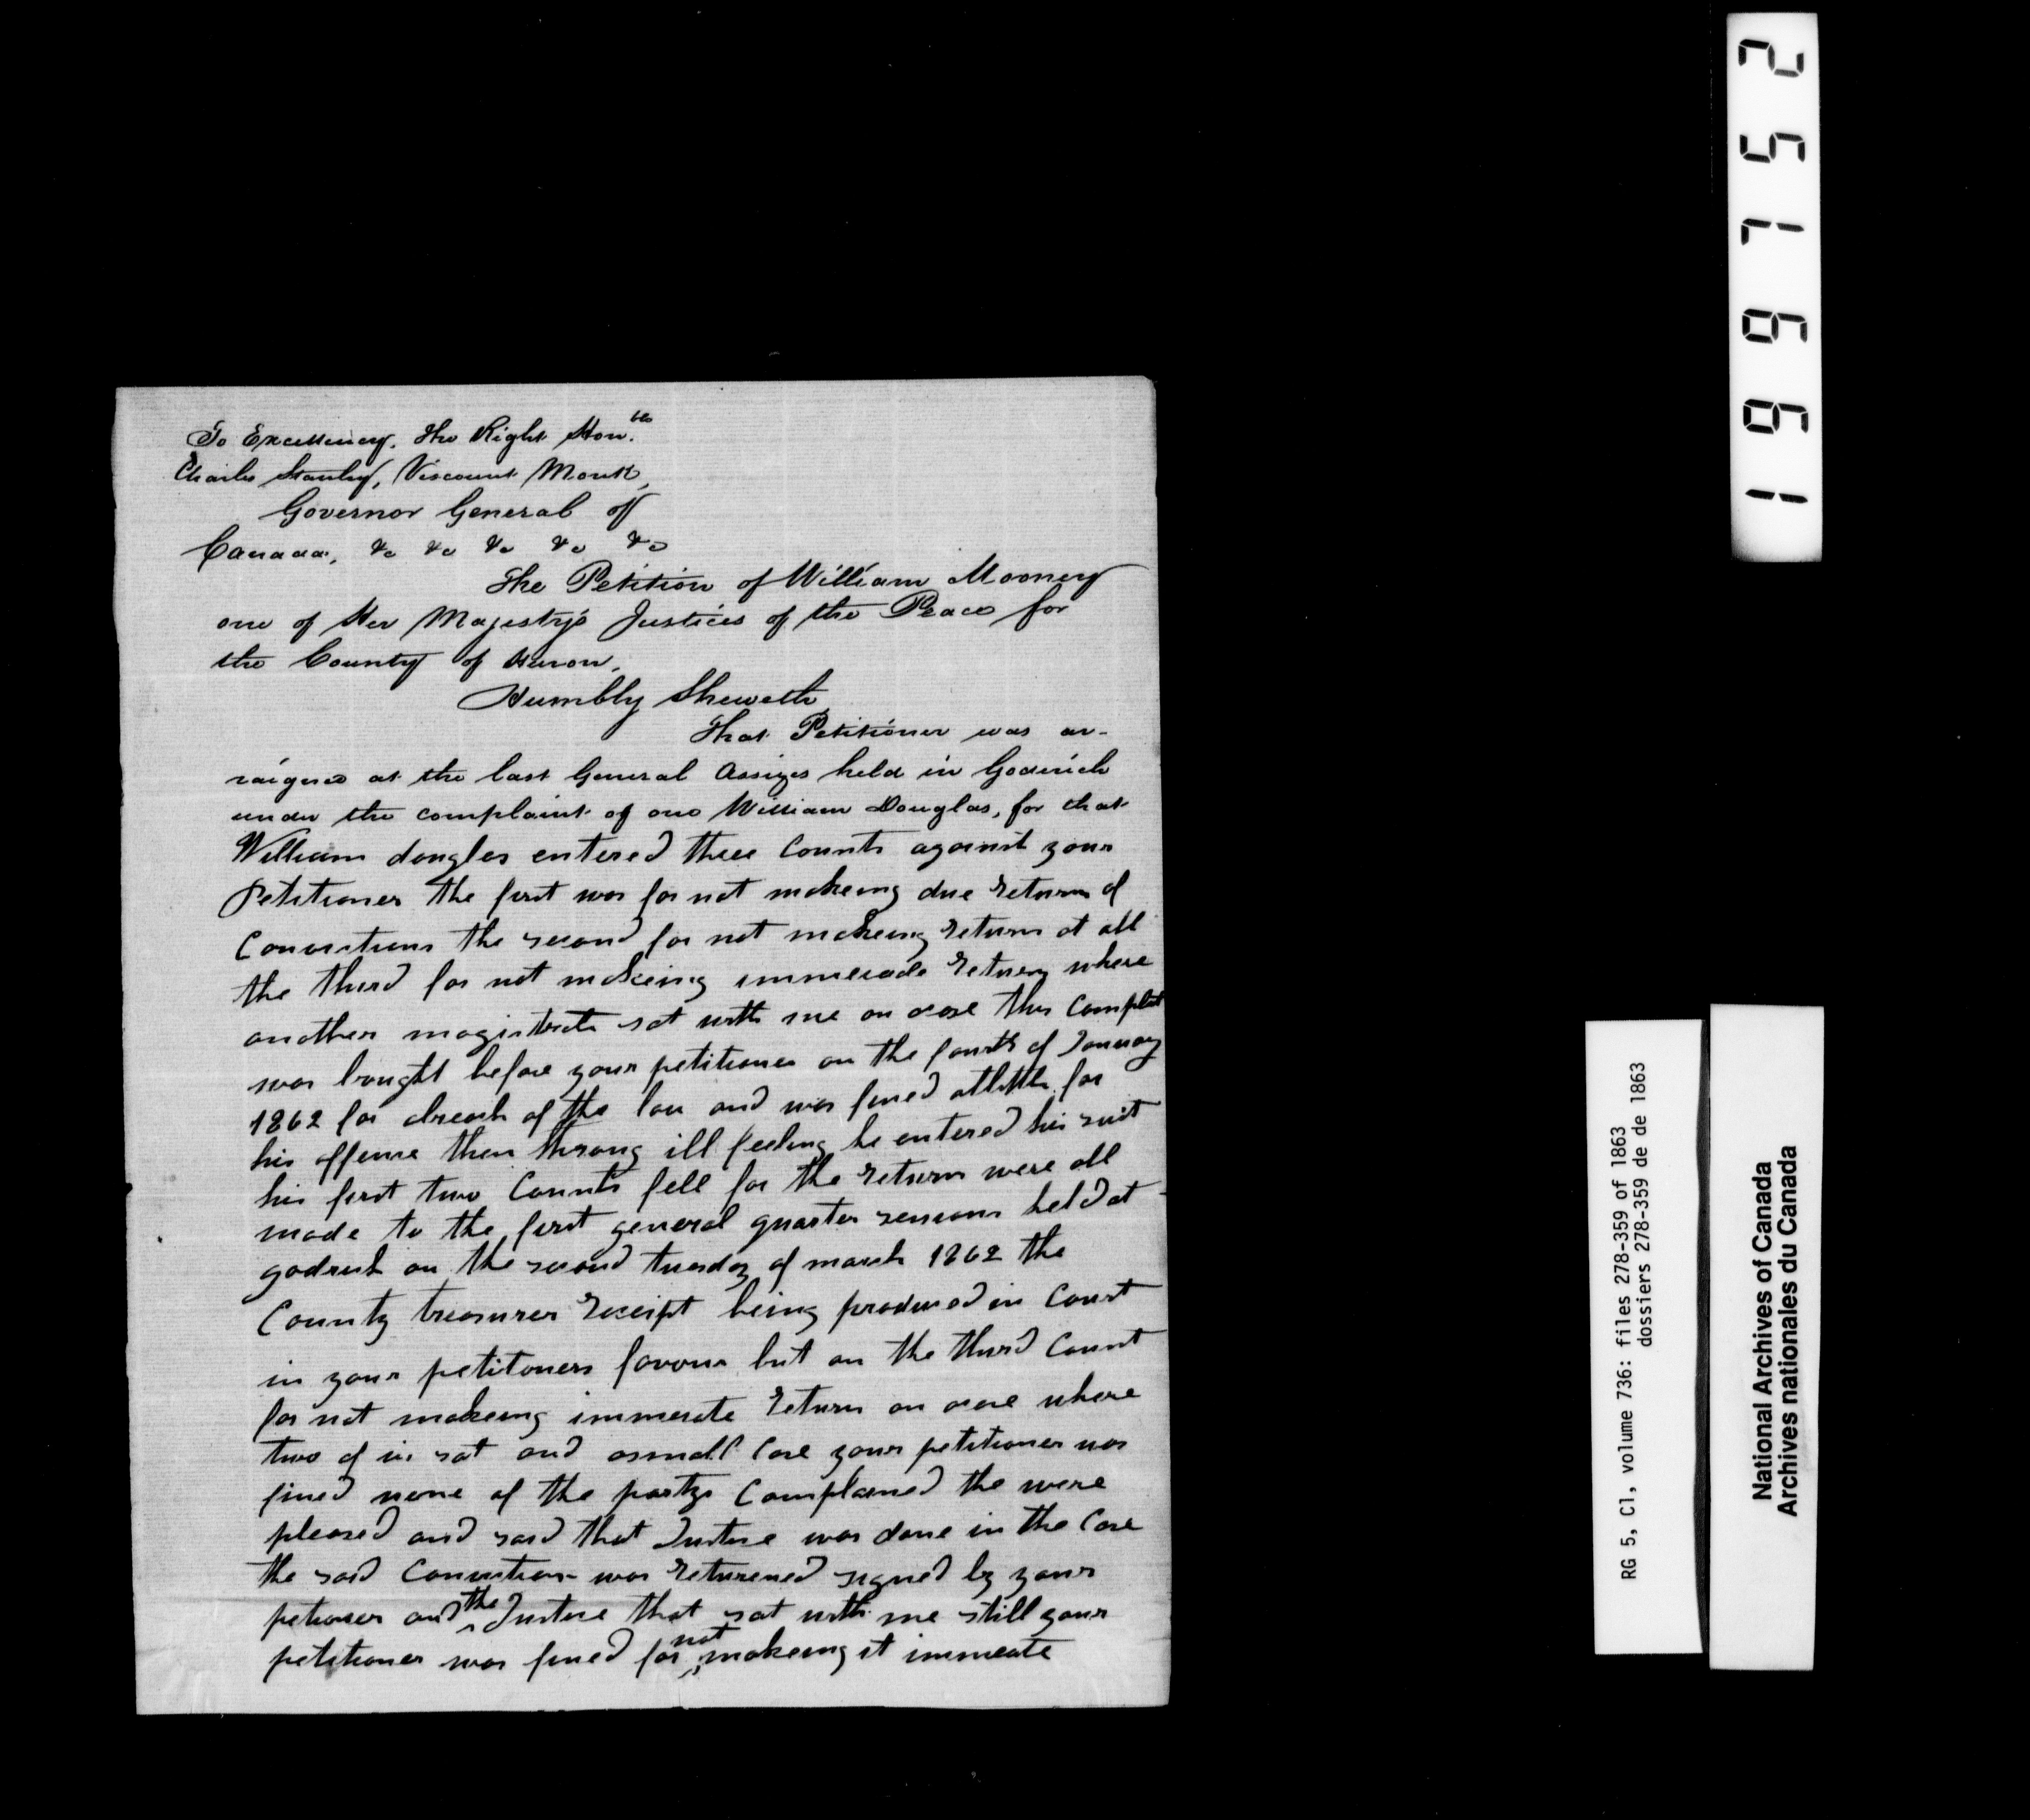 To Excellency, The Right Hon.ble
Charles Stanley, Viscount Monk,
Governor General of
Canada, &c &c &c &c &c
The Petition of William Mooney
one of Her Majesty's Justices of the Peace for
the County of Huron,
Humbly Sheweth
That Petitioner was ar-
raigned at the last General Assizes held in Goderich
under the complaint of one William Douglas, for that
William douglas entered three Counts against your
Petitioner the first was for not makeing due return of
Convictions the second for not makeing return at all
the third for not makeing immerade return where
another magistrate sat with me on acase this
was bought before your petitioner on the fourth of January
1862 for abreach of the law and was fined alittle for
his offense then throug ill feeling he entered his suit
his first two Counts fell for the return were all
made to the first general quarter sessions held at
godrich on the second tuesday of march 1862 the
County treasurer receipt being produced in Court
in your petitoners favour but on the third Count
for not makeing immerate return on acase where
two of us sat and asmall Case your petitioner was
fined none of the partys Complained the were
pleased and said that Justice was done in the Case
the said Conviction was returened signed by your
petioner and the Justice that sat with me still your
petitioner was fined for not makeing it immeate
199752
RG 5, C1, volume 736: files 278-359 of 1863
dossiers 278-359 de de 1863
National Archives of Canada
Archives nationales du Canada